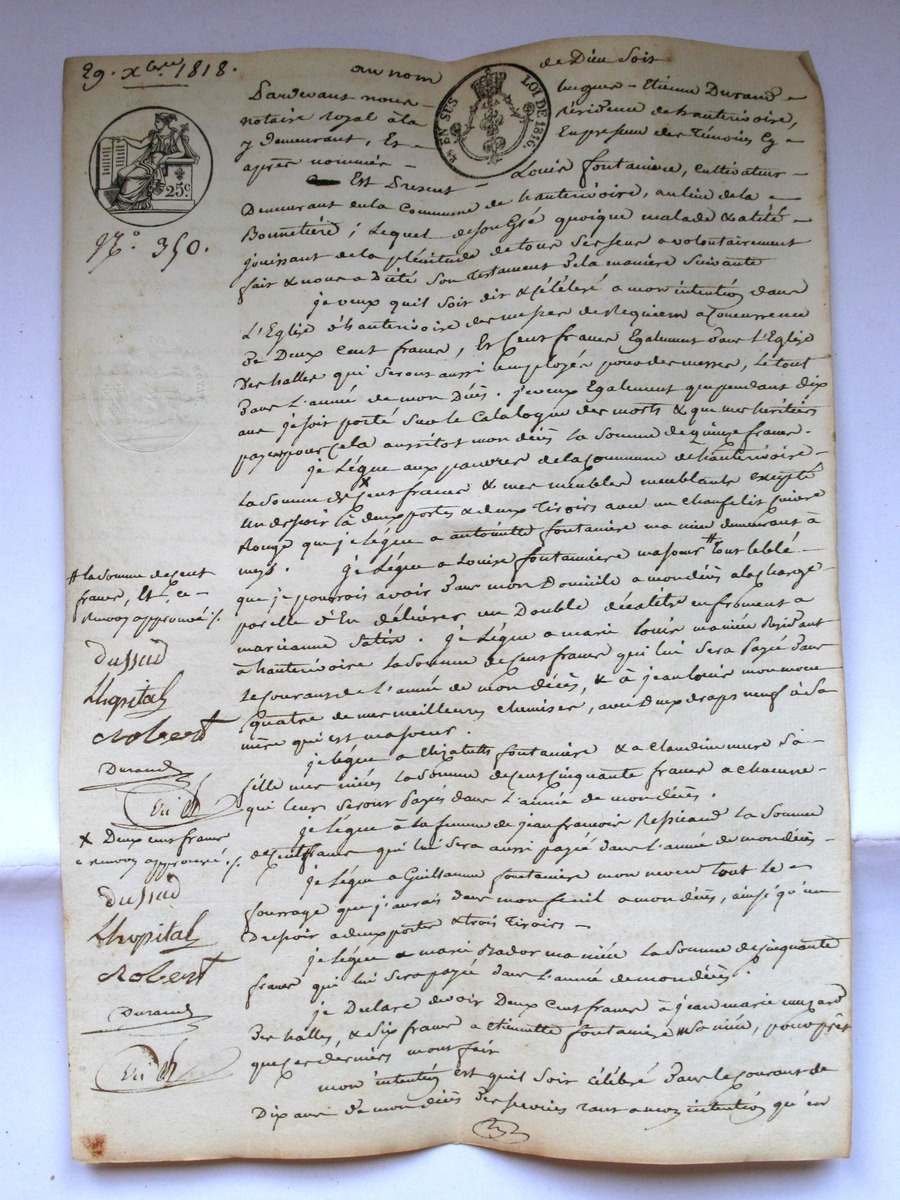 29. xbre 1818.
au nom de Dieu Soit
Pardevant nous hugues-Etienne Durand
notaire royal à la résidence de hauterivoire,
y demeurant, Et En presence des Témoins Cy
après nommés
Est Présent Louis fontaniere, cultivateur
LOI DE 1816
25c
N.° 350.
Demeurant en la Commune de hauterivoire, au lieu de la
Bonnetière; Lequel de son Gré quoique malade & alité
jouissant de la plénitude de tous Ses Sens a volontairement
fait & nous a Dicté Son Testament de la maniere Suivante
je veux quil Soit dit & célébré a mon intention dans
L'Eglise d'hauterivoire des messes de Requiem a Concurrence
De Deux Cent francs, Et Cent francs Egalement dans L'Eglise
des halles qui Seront aussi Employés pour des messes, Le tout
dans L'année de mon Décès. je veux Egalement que pendant dix
ans je Soit porté Sur le Catalogue des morts & que mes héritiers
payent pour Cela aussitot mon décès La Somme de quinze francs.
je Lègue aux pauvres de la Commune de hauterivoire
La Somme de x Cent francs & mes meubles meublants excepté
un dressoir à deux portes & deux Tiroirs avec un
Rouge que je Lègue a antoinette fontaniere ma niece demeurant à
meys. je Lègue a Louise fontanniere ma Soeur # tout le blé
que je pourrois avoir dans mon Domicile a mon décès a la charge
par elle d'En délivrer un Double décalitre en froment a
marianne je Lègue a marie Louis ma niéce Résidant
à hauterivoire La Somme de Cent francs qui lui Sera Payée dans
Le Courant de L'année de mon décès, & à jean Louis mon neveu
quatre de mes meilleures chemises, avec Deux draps neuf à Sa
mère qui est ma Soeur.
je Lègue a Elizabeth fontaniere & a Claudine Sa
fille mes niéces La Somme de Cent Cinquante francs a chacune
qui leur Seront Payés dans L'année de mon décès.
je Lègue à la femme de jean francois La Somme
de Cent francs qui lui Sera aussi payée dans L'année de mon décès
je Lègue a Guillaume fontaniere mon neveu tout Le
fourrage que j'aurais dans mon fenil a mon décès, ainsi qu'un
Dressoir a deux portes & trois Tiroirs
je Lègue a marie ma niéce La Somme de Cinquante
francs qui lui Sera payée dans L'année de mon décès.
je Déclare devoir Deux Cent francs à jean marie
des halles, & Six francs a Etiennette fontaniere ma niéce, pour prêt
que Ces derniers m'ont fait
mon intention est quil Soit célébré dans le Courant de
Dix ans de mon décès des Services tant a mon intention qu'en
# La Somme de Cent
francs, Et, Ce
Renvoy approuvé ./.
Dussud
Lhopital
Robert
Durand
x Deux Cent francs
Renvoy approuvé ./.
Dussud
Lhopital
Robert
Durand